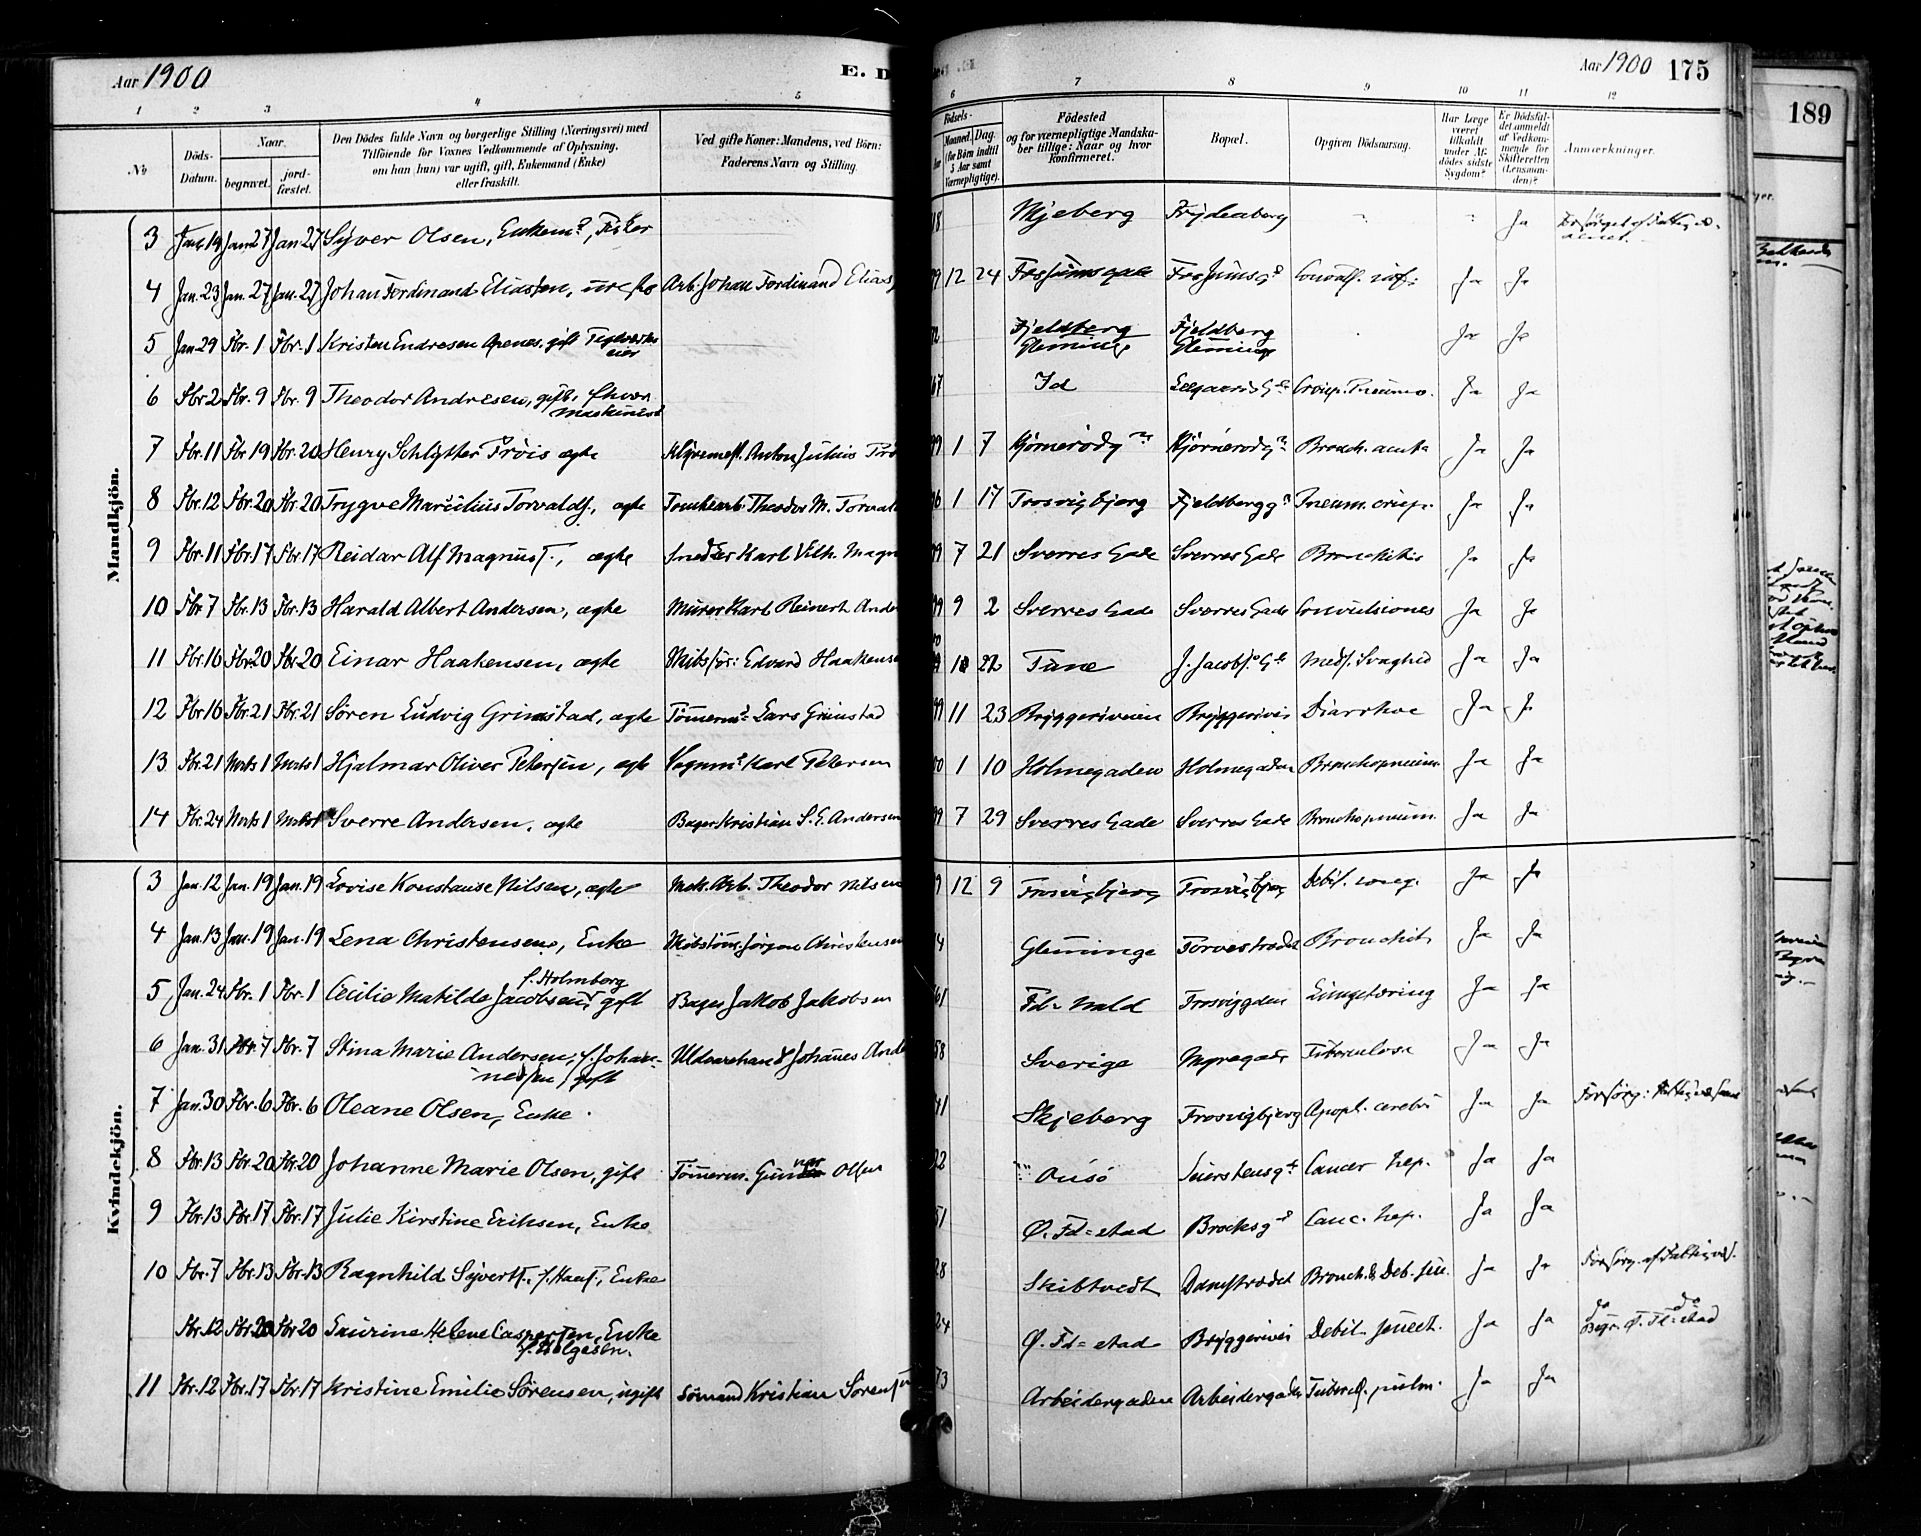 Aar 1900
E. D
Aar 1900 175
189
1 2 3 4 5 6 7 8 9 10 11 12
No
Döds-Datum.
Naar
begravet.
jord-fæstet.
Den Dödes fulde Navn og borgerlige Stilling (Næringsvei) med
Tilföiende for Voxnes Vedkommende af Oplysning,
om han (hun) var ugift, gift, Enkemand (Enke)
eller fraskilt.
Ved gifte Koner: Mandens, ved Börn:
Faderens Navn og Stilling.
Födsels-
Maaned. Dag.
(for Börn indtil
5 Aar samt
Værnepligtige).
Födested
og for værnepligtige Mandska-
ber tillige: Naar og hvor
konfirmeret.
Bopæl.
Opgiven Dödsaarsag.
Har Læge
været
tilkaldt
under Af-
dödes sidste
Sygdom?
Er Dödsfal-
det anmeldt
af Vedkom-
mende for
Skifteretten
(Lensman-
den)?
Anmærkninger.
Mandkjön.
3 Jan. 19 Jan 27 Jan 27 Syver Olsen, Enkem?, Fisker 18 Skjeberg Frydenberg Ja
4 Jan. 23 Jan. 27 Jan. 27 Johan Ferdinand Eliassen, uægte Arb. Johan Ferdinand Elias 99 12 24 Ja Ja
5 Jan. 29 Fbr. 1 Fbr. 1 Kristen Endresen Apenes, gift Teglverkseier Fjeldberg Glemminge Fjeldberg Glemminge Ja Ja
6 Fbr 2 Fbr. 9 Fbr. 9 Theodor Andresen, gift, Maskinist 67 Id Croup. Pneumo. Ja Ja
7 Fbr. 11 Fbr 19 Fbr. 20 Henry Schlytter Tröis ægte Anton Julius 99 1 7 Bronch. acuta Ja Ja
8 Fbr. 12 Fbr. 20 Fbr. 20 Trygve Marcilius Torvalds., ægte Theodor M. Torvald 96 1 17 Trosvigbjerg Fjeldbergg. Pneum. croup. Ja Ja
9 Fbr. 11 Fbr. 17 Fbr 17 Reidar Alf Magnus., ægte Snedker Karl Vilh. Magn 99 7 21 Sverres Gade Sverres Gade Bronchitis Ja Ja
10 Fbr. 7 Fbr. 13 Fbr. 13 Harald Albert Andersen, ægte Murer Karl Reinert Ande 99 9 2 Sverres Gade Sverres Gade Convulsiones Ja Ja
11 Fbr. 16 Fbr 20 Fbr. 20 Einar Haakensen, ægte Skibsför: Edvard Haakense 22 Tune J. Jacobs. Gd Medf. Svaghed Ja Ja
12 Fbr 16 Fbr. 21 Fbr. 21 Sören Ludvig Grimstad, ægte Tömerm. Lars Grimstad 99 11 23 Bryggeriveien Bryggerivei Diarrhoe Ja Ja
13 Fbr. 21 Marts 1 Marts 1 Hjalmar Oliver Petersen, ægte Vognm. Karl Petersen 00 1 10 Holmegaden Holmegaden Bronchopneum. Ja Ja
14 Fbr. 24 Marts 1 Marts 1 Sverre Andersen, ægte Bager Kristian S. E. Andersen 99 7 29 Sverres Gade Sverres Gade Bronchopneum. Ja Ja
Kvindekjön.
3 Jan. 12 Jan. 19 Jan. 19 Lovise Konstanse Nilsen, ægte Mek. Arb. Theodor Nilsen 9 12 9 Trosvigbjerg Trosvigbjerg Debil. cong. Ja Ja
4 Jan. 13 Jan. 19 Jan. 19 Lena Christensen, Enke Skibstöm. Jörgen Christensen 14 Glemminge Torvestrædet Bronchit. Ja Ja
5 Jan. 24 Fbr. 1 Fbr. 1 Cecilie Matilde Jacobsen, f. Holmberg gift Bager Jakob Jakobsen 61 Fd=hald Trosviggden Lungetæring Ja Ja
6 Jan. 31 Fbr. 7 Fbr. 7 Stina Marie Andersen, f. Johannessen, gift Uldvarehand. Johannes Ande 58 Sverige Myregade Tuberculose Ja Ja
7 Jan. 30 Fbr. 6 Fbr. 6 Oleane Olsen, Enke. 41 Skjeberg Trosvigbjerg Apopl. cerebri Ja Ja
8 Fbr. 13 Fbr. 20 Fbr. 20 Johanne Marie Olsen, gift Tömerm. Gunnar Olsen 22 Onsö Cancer hep. Ja Ja
9 Fbr. 13 Fbr. 17 Fbr. 17 Julie Kirstine Eriksen, Enke 51 Ø. Fd=stad Brocksgd Canc. hep. Ja Ja
10 Fbr. 7 Fbr. 13 Fbr. 13 Ragnhild Syverts., f. Hans., Enke 28 Skibtvedt Damstrædet Bronch. & Deb. sen. Ja Ja Forsörg. af Fattigvæs.
Fbr. 12 Fbr. 20 Fbr 20 Laurine Helene Caspersen, Enke f. Helgesen. 24 Ø. Fd=stad Bryggerivei Debil. senect. Ja Ja do do Begr. Ø. Fd=stad
11 Fbr. 12 Fbr. 17 Fbr. 17 Kristine Emilie Sörensen, ugift Sömand Kristian Sörensen 73 Arbeidergaden Arbeidergaden Tuberc. pulm. Ja Ja